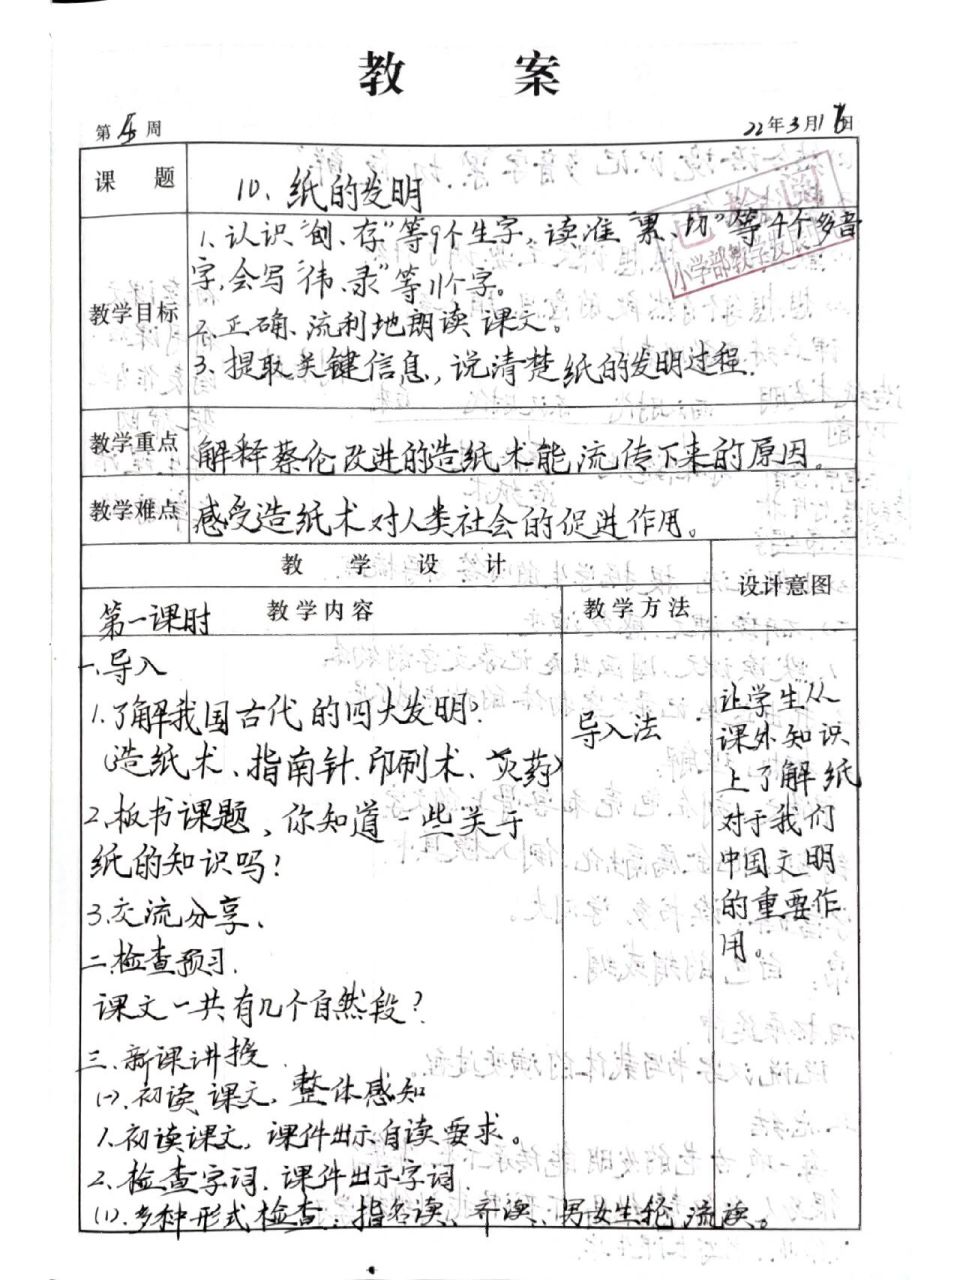 教 案
第 5 周
22年3月16日
课 题
10、纸的发明
教学目标
1、认识“创、存”等9个生字，读准“累、切”等4个多音
字，会写“伟、录”等11个字。
2、正确、流利地朗读课文。
3、提取关键信息，说清楚纸的发明过程.
教学重点
解释蔡伦改进的造纸术能流传下来的原因。
教学难点
感受造纸术对人类社会的促进作用。
教 学 设 计
设计意图
第一课时
教学内容
教学方法
一.导入
1.了解我国古代的四大发明?
(造纸术、指南针、印刷术、火药)
2、板书课题，你知道一些关于
纸的知识吗?
3.交流分享、
二.检查预习.
课文一共有几个自然段?
三.新课讲授
(一).初读课文，整体感知
1.初读课文，课件出示自读要求。
2、检查字词.课件出示字词.
(1).多种形式检查：指名读、齐读、男女生轮流读。
导入法
让学生从
课外知识
上了解纸
对于我们
中国文明
的重要作
用。
已检阅
小学部教学发展